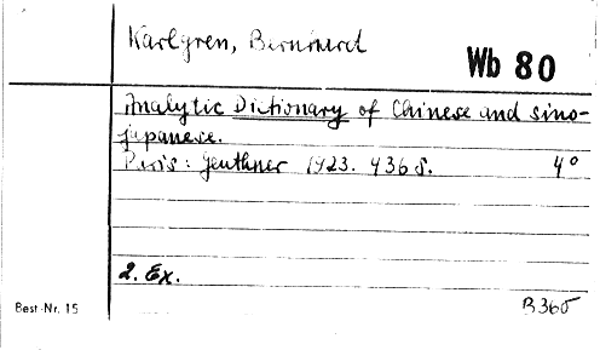 Karlgren, Bernhard
Wb 80
Analytic Dictionary of Chinese and sino-
japanese.
Paris: Geuthner 1923. 436 S. 4°
2. Ex.
Best.-Nr. 15
B365